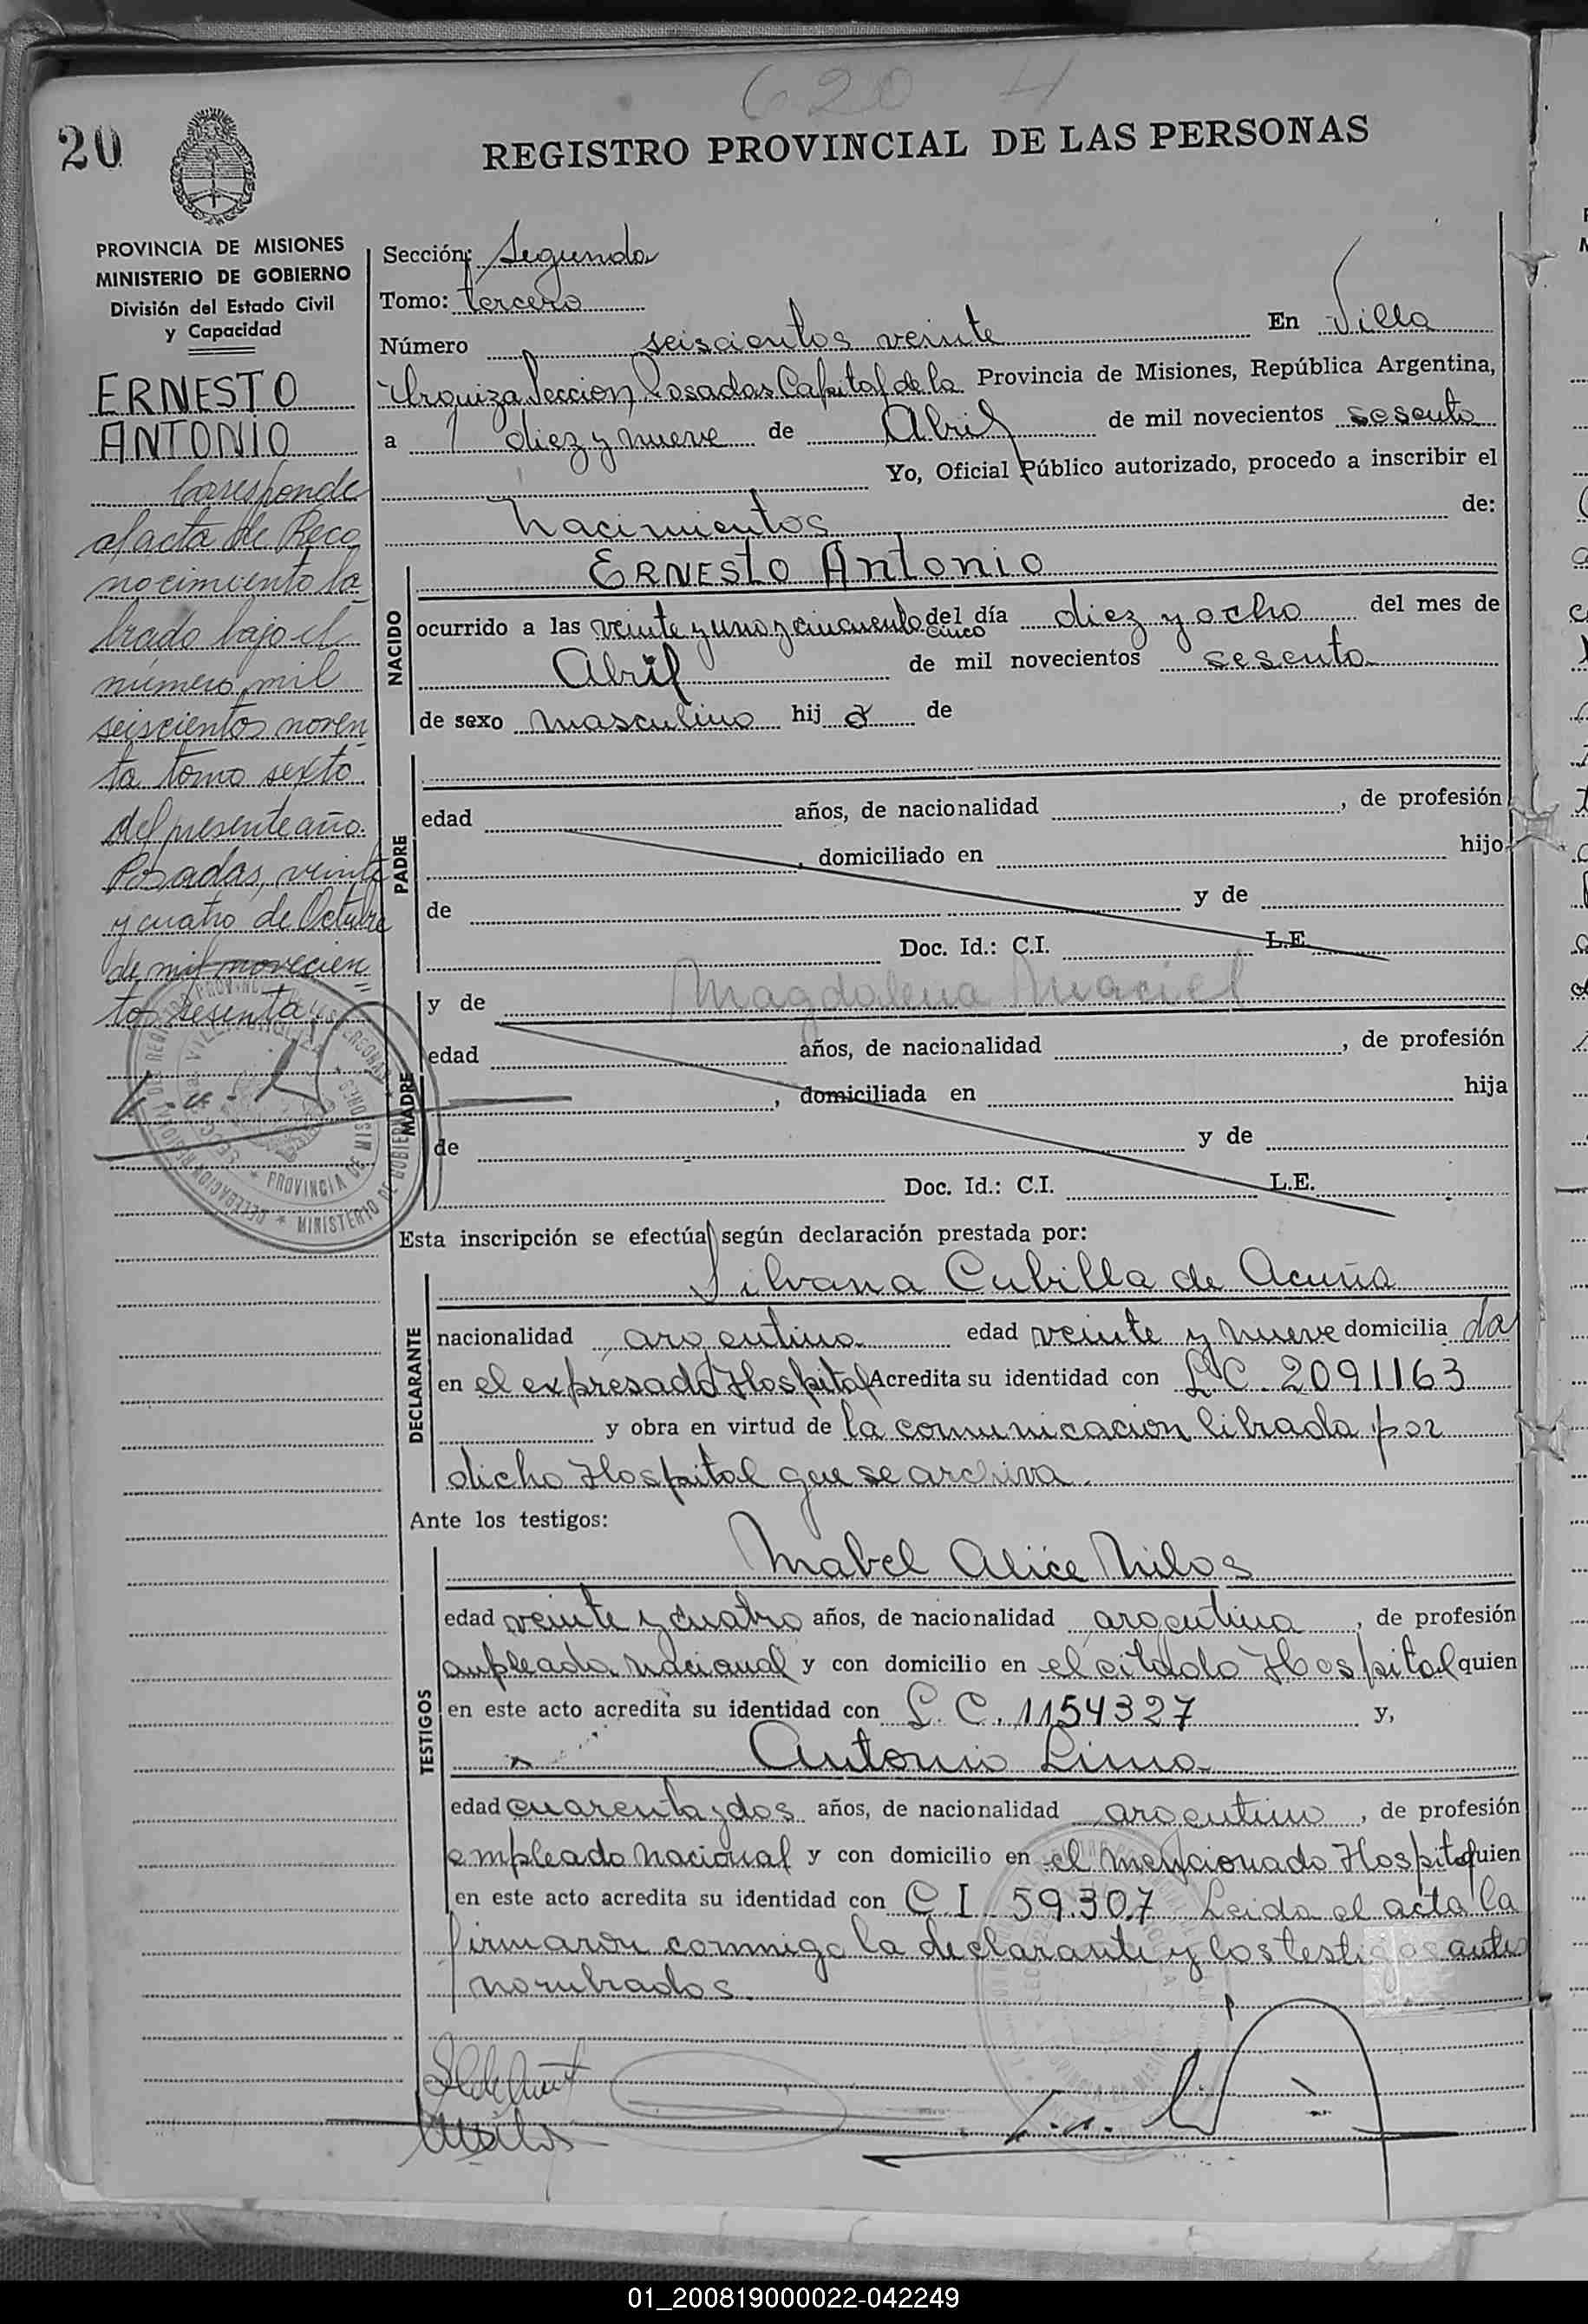 620 4
20
REGISTRO PROVINCIAL DE LAS PERSONAS
PROVINCIA DE MISIONES
MINISTERIO DE GOBIERNO
División del Estado Civil
y Capacidad
ERNESTO
ANTONIO
Corresponde
al acta de Reco
nocimiento la
brado bajo el
número mil
seiscientos noven
ta tomo sexto
del presente año.
Posadas, veinte
y cuatro de Octubre
de mil novecien
tos sesenta
Sección: Segunda
Tomo: tercero
Número seiscientos veinte En Villa
Urquiza Seccion Posadas Capital de la Provincia de Misiones, República Argentina,
a diez y nueve de Abril de mil novecientos sesenta
Yo, Oficial Público autorizado, procedo a inscribir el
nacimientos de:
NACIDO
ERNESTO Antonio
ocurrido a las veinte y uno y cincuenta cinco del día diez y ocho del mes de
Abril de mil novecientos sesenta
de sexo masculino hij o de
PADRE
edad años, de nacionalidad , de profesión
, domiciliado en hijo
de y de
Doc. Id.: C.I. L.E.
MADRE
y de Magdalena Maciel
edad años, de nacionalidad , de profesión
, domiciliada en hija
de y de
Doc. Id.: C.I. L.E.
Esta inscripción se efectúa según declaración prestada por:
DECLARANTE
Silvana Cubilla de Acuña
nacionalidad argentina edad veinte y nueve domicilia da
en el expresado Hospital Acredita su identidad con L.C. 2091163
y obra en virtud de la comunicacion librada por
dicho Hospital que se archiva.
Ante los testigos:
TESTIGOS
Mabel Alice Milos
edad veinte y cuatro años, de nacionalidad argentina , de profesión
empleada nacional y con domicilio en el citado Hospital quien
en este acto acredita su identidad con L. C. 1154327 y,
Antonio Lima
edad cuarenta y dos años, de nacionalidad argentino , de profesión
empleado nacional y con domicilio en el mencionado Hospital quien
en este acto acredita su identidad con C.I. 59.307 Leida el acta la
firmaron conmigo la declarante y los testigos antes
nombrados.
PROVINCIA DE MISIONES
MINISTERIO DE GOBIERNO
01_200819000022-042249